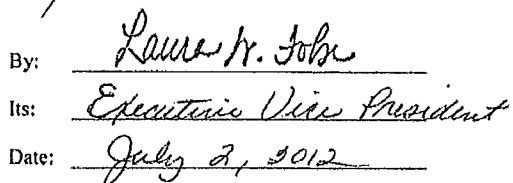 By: Laura W.
Its: Executive Vice President
Date: July 2, 2012